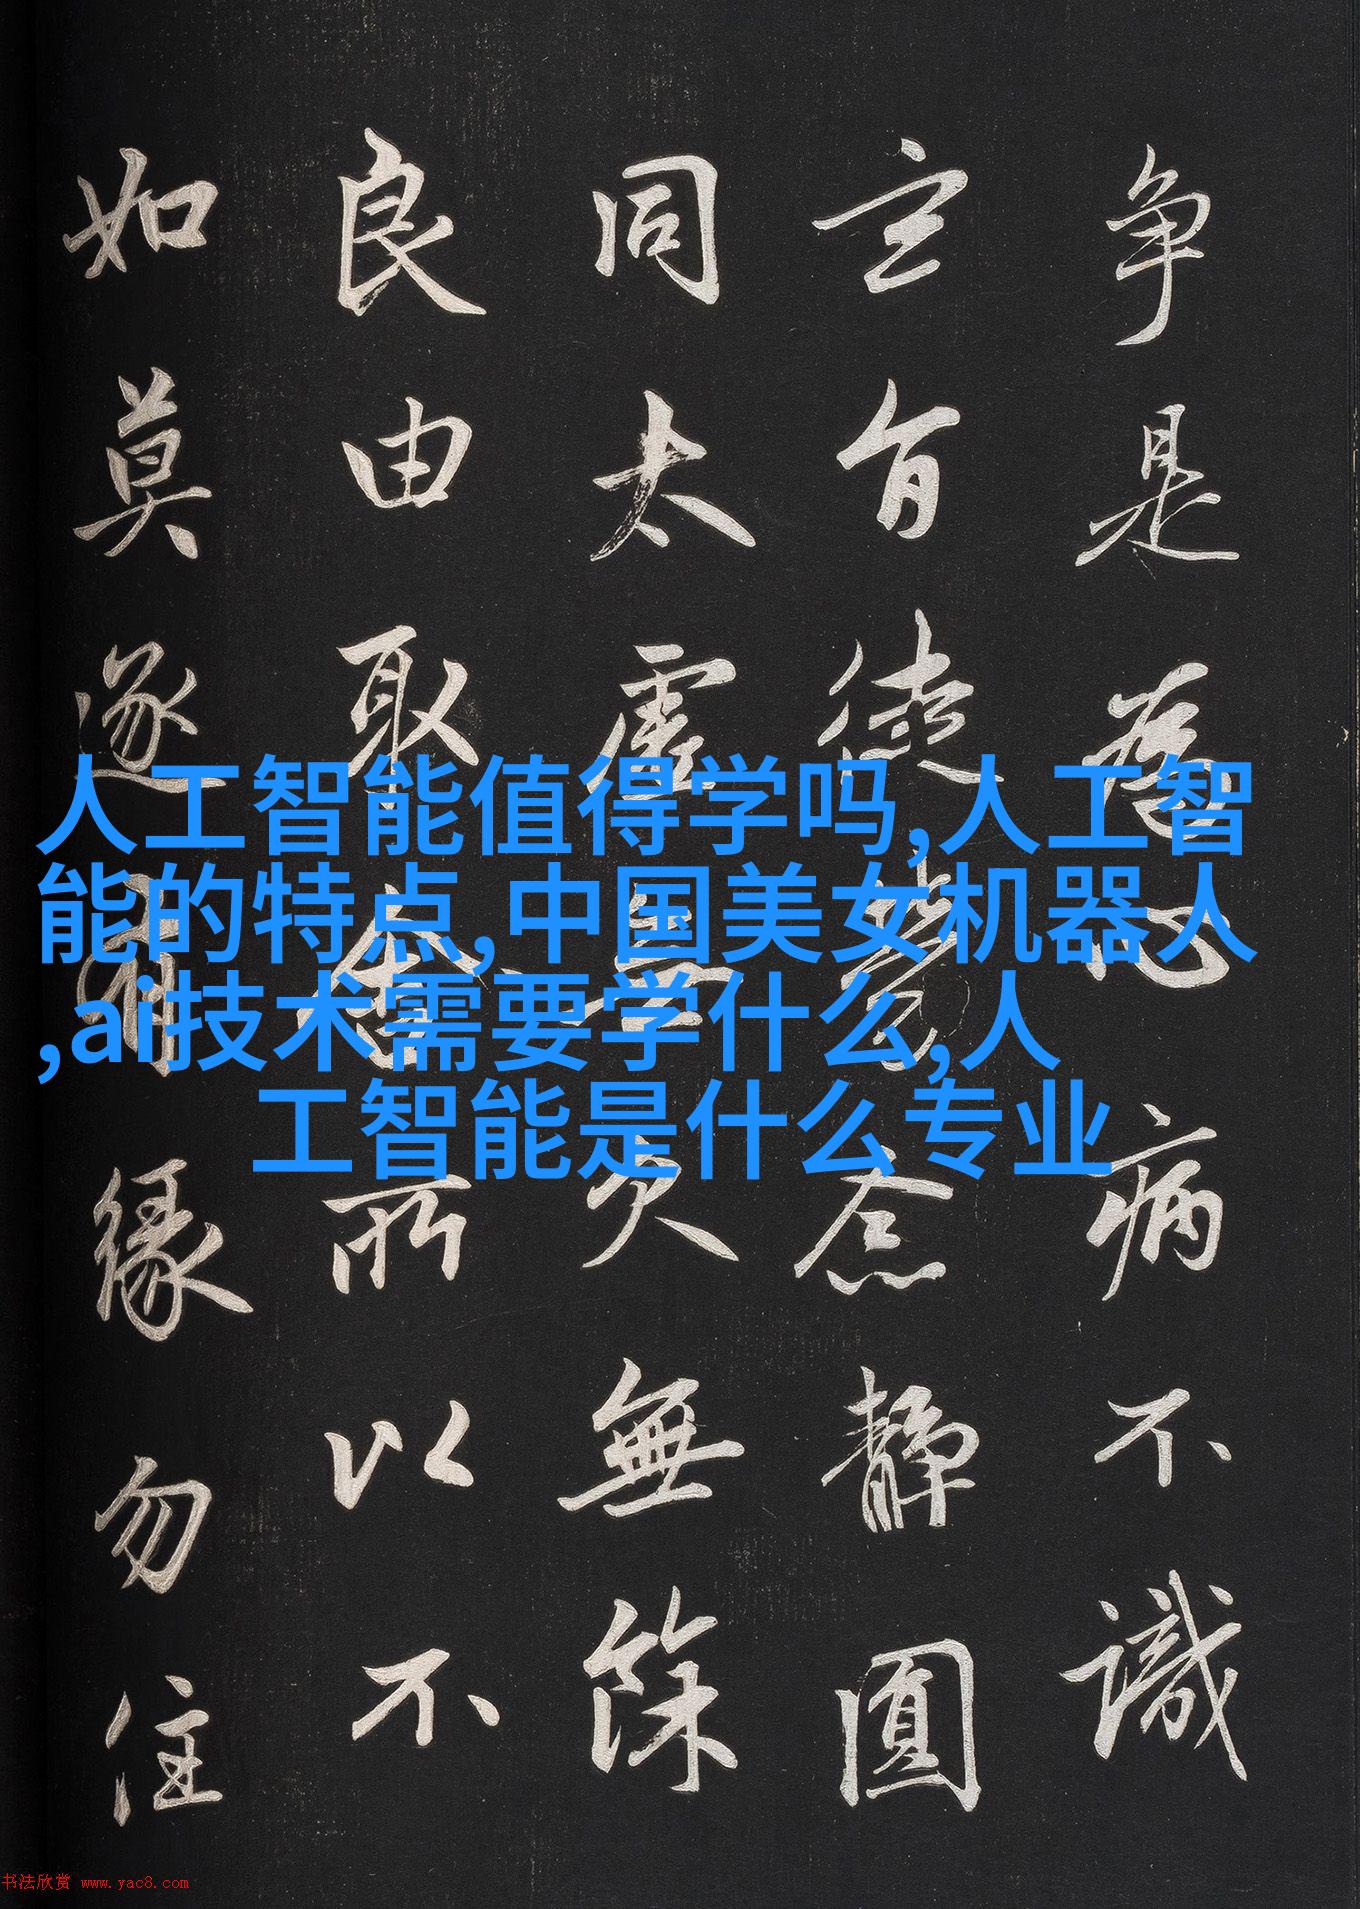 争是為心病不識
玄旨徒勞念靜圓
同太虛無欠無餘
良由取舍所以不
如莫逐有緣勿住
人工智能值得学吗,人工智
能的特点,中国美女机器人
,ai技术需要学什么,人
工智能是什么专业
书法欣赏 www.yac8.com